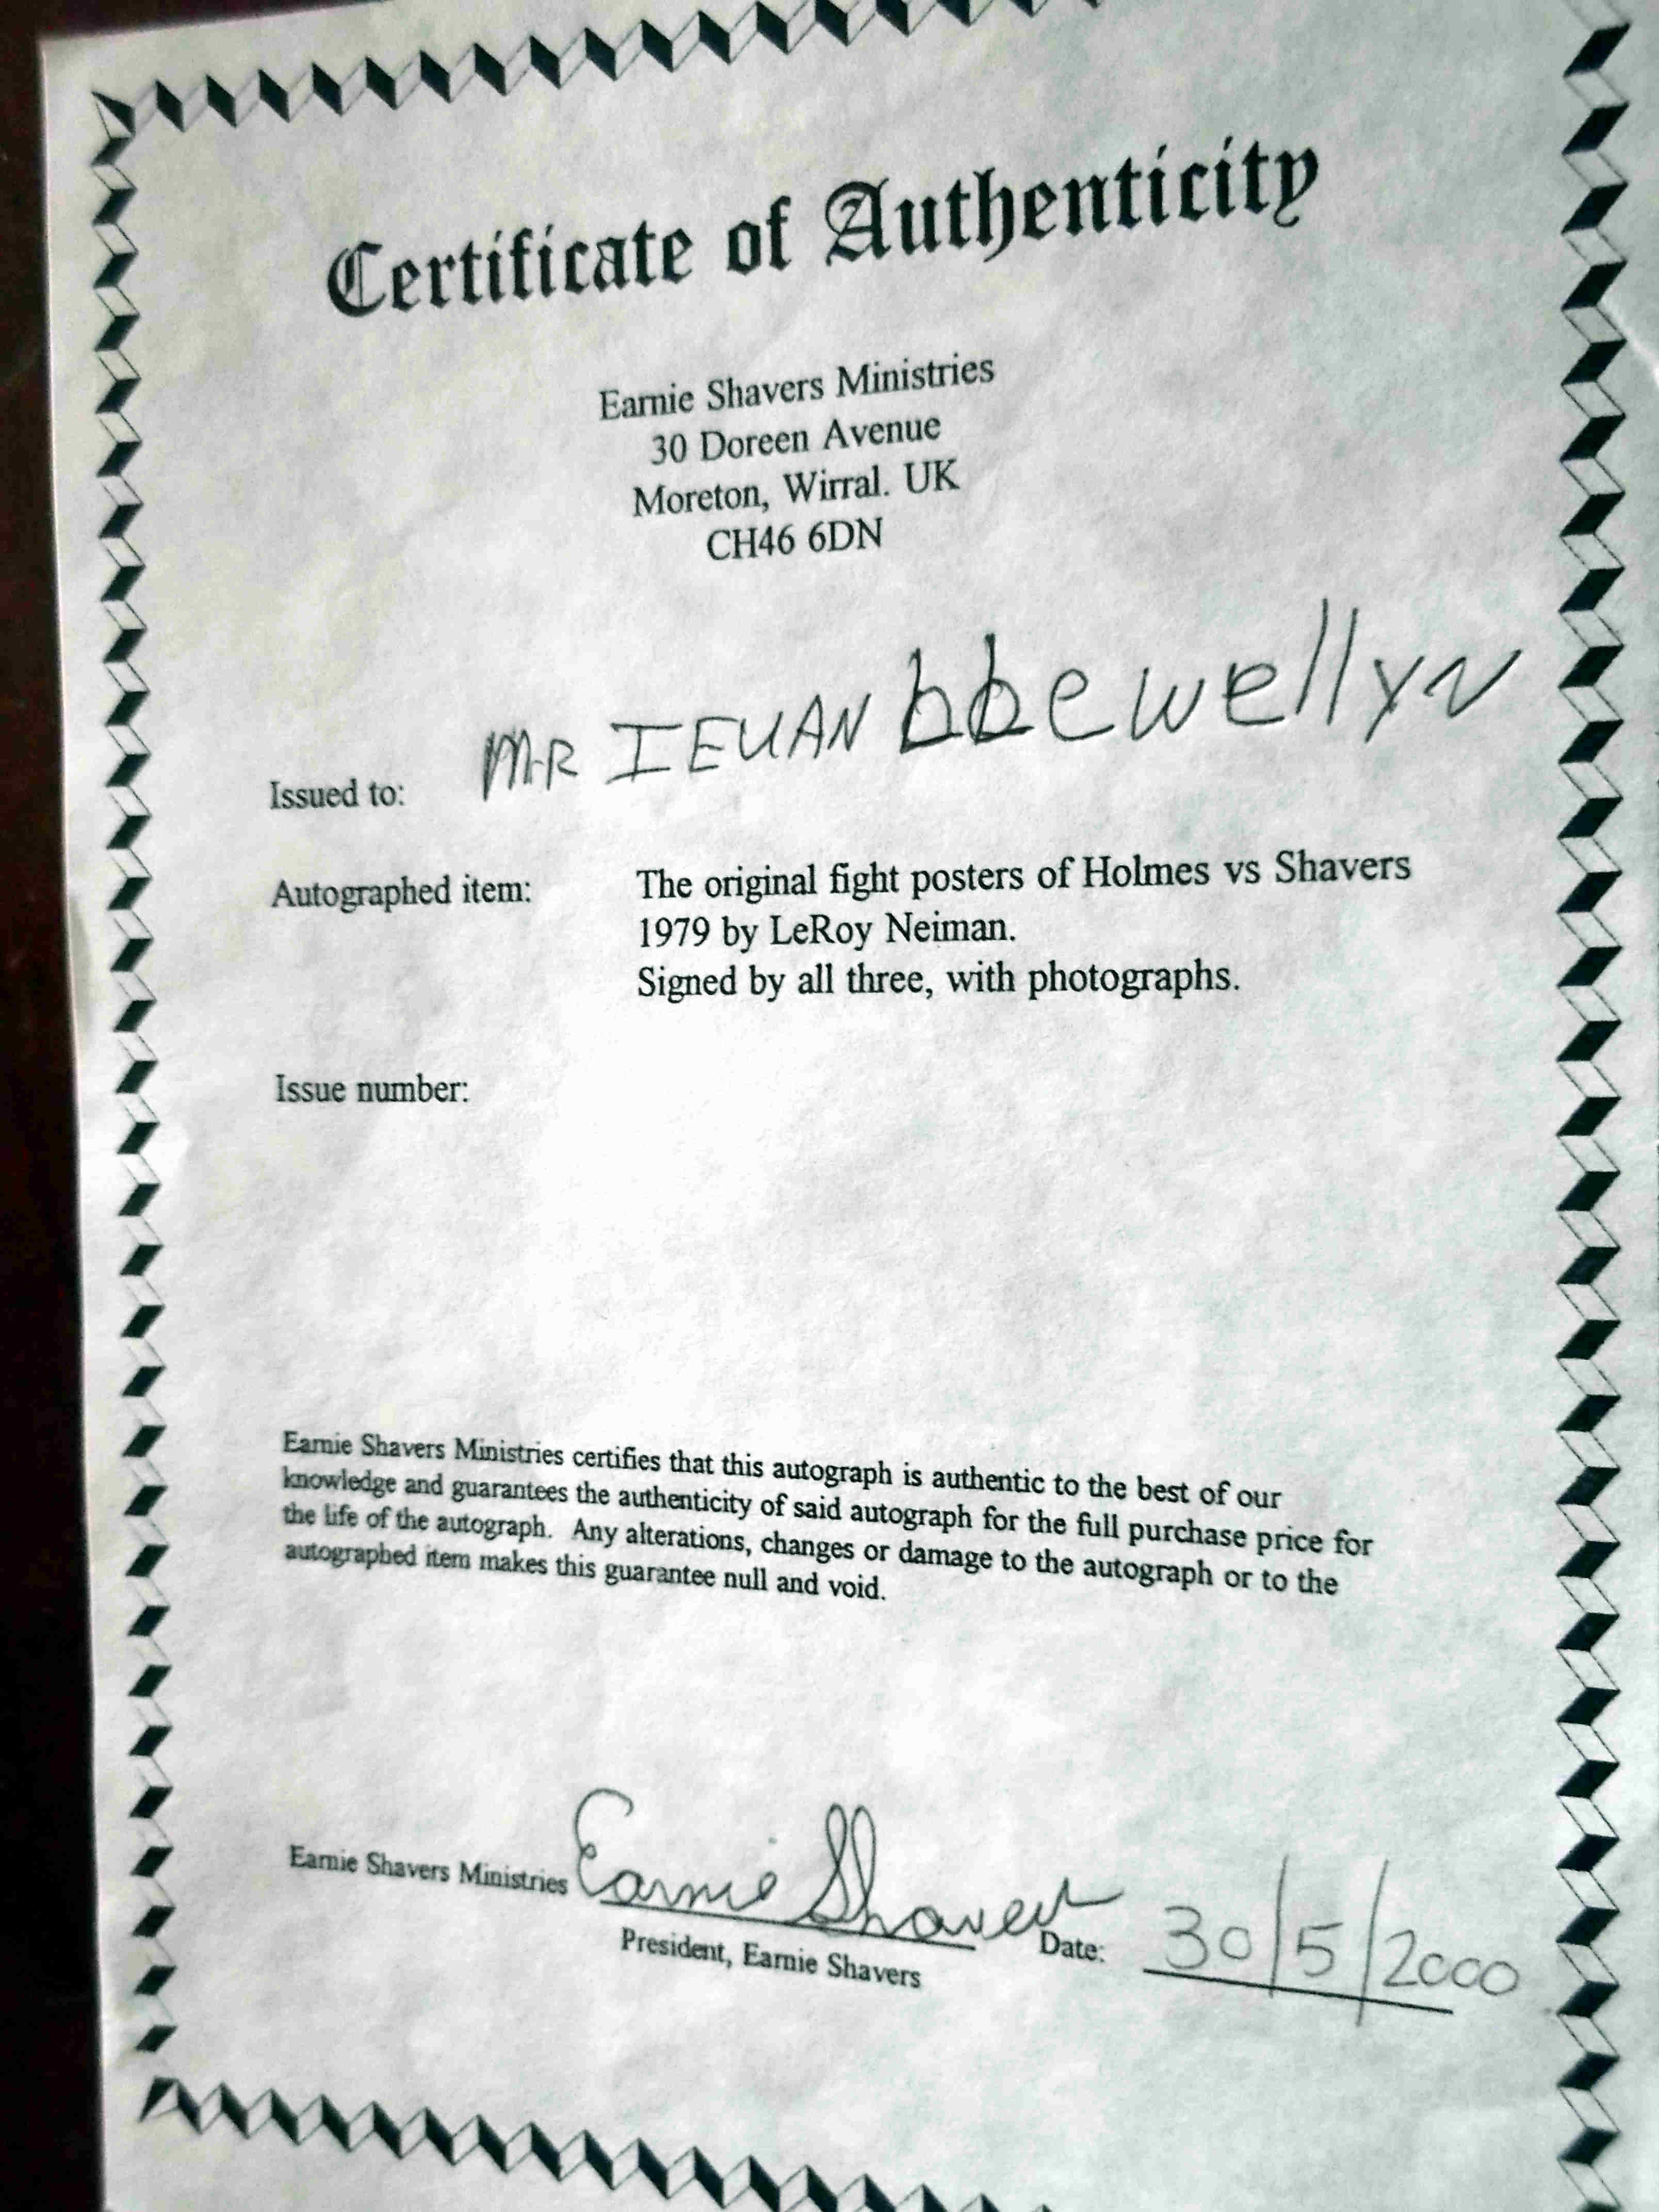 Certificate of Authenticity
Earnie Shavers Ministries
30 Doreen Avenue
Moreton, Wirral. UK
CH46 6DN
Issued to: MR IEUAN LLewellyn
Autographed item: The original fight posters of Holmes vs Shavers
1979 by LeRoy Neiman.
Signed by all three, with photographs.
Issue number:
Earnie Shavers Ministries certifies that this autograph is authentic to the best of our
knowledge and guarantees the authenticity of said autograph for the full purchase price for
the life of the autograph. Any alterations, changes or damage to the autograph or to the
autographed item makes this guarantee null and void.
Earnie Shavers Ministries Earnie Shavers Date: 30/5/2000
President, Earnie Shavers